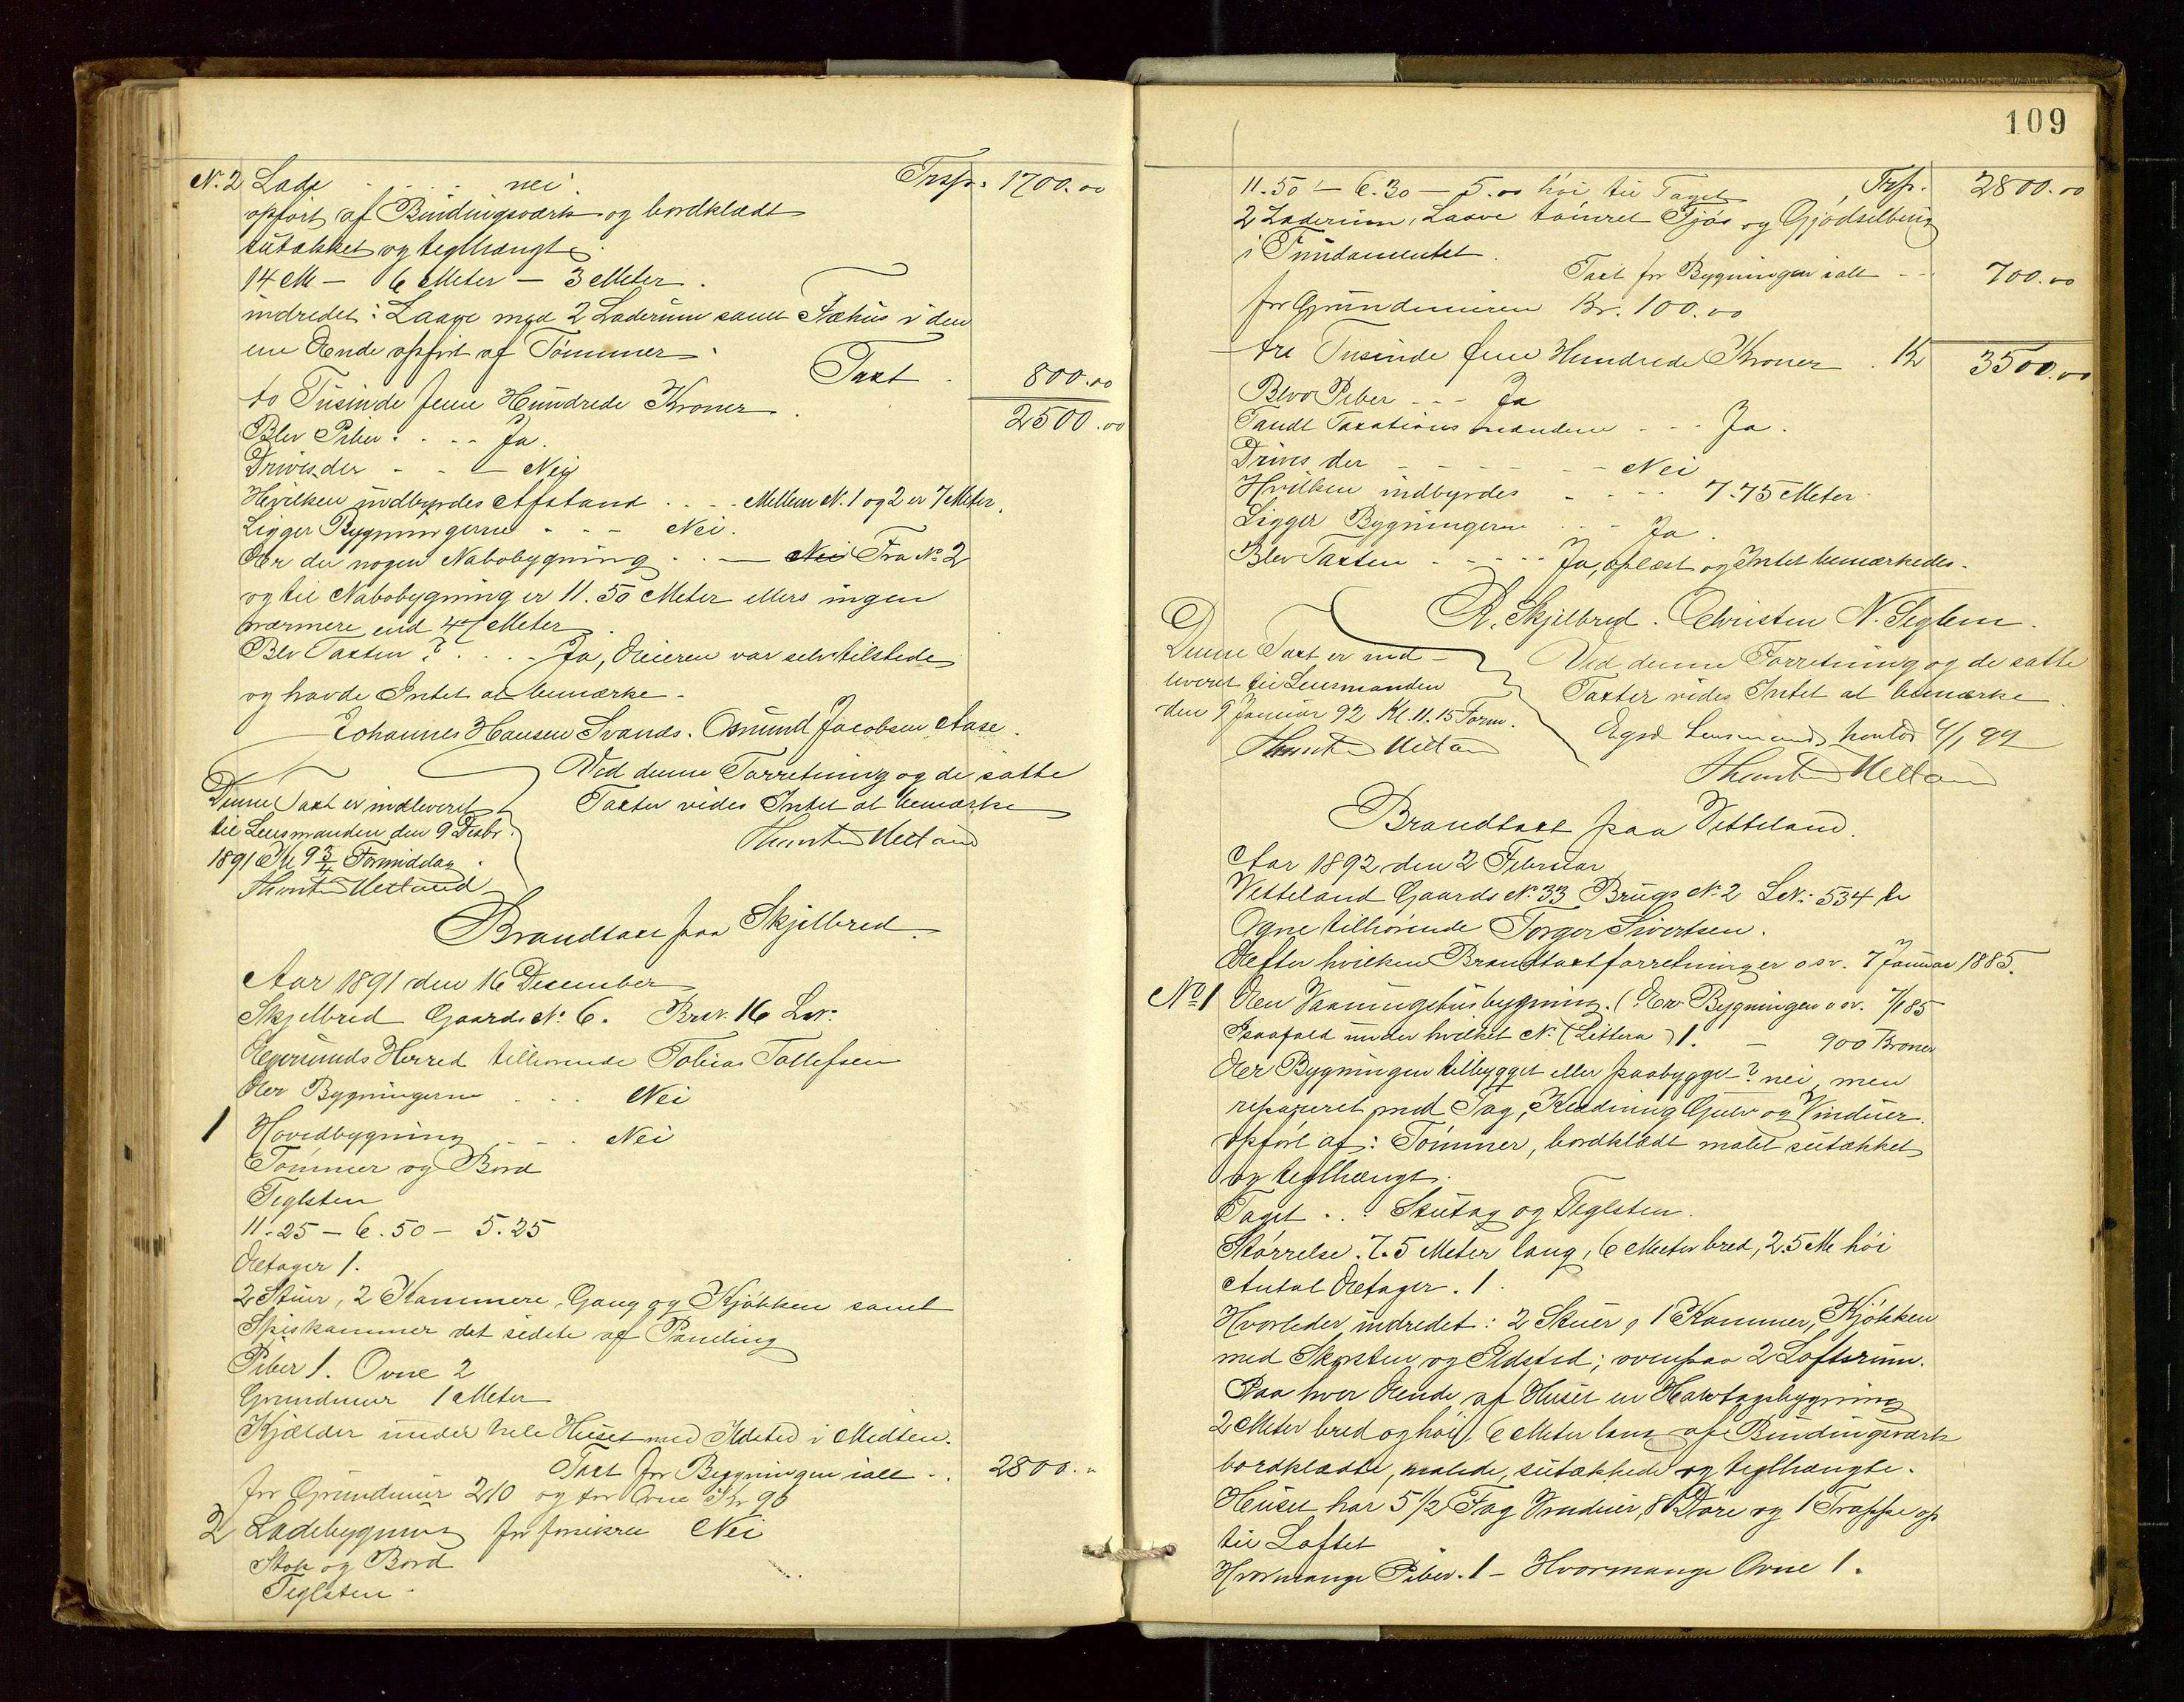 N. 2 Lade . . . . nei. Trsp: 1700.00
opført af Bindingsværk og bordklædt
sutækket og teglhængt.
14 M — 6 Meter — 3 Meter.
indredet: Laave med 2 Laderum samt Fæhus i den
ene Ænde opført af Tømmer. Taxt. 800.00
to Tusinde feme Hundrede Kroner. 2500.00
Blev Piber. . . - - Ja.
Drives der - - - Nei
Hvilken indbyrdes Afstand . . . - Mellem N. 1 og 2 er 7 Meter.
Ligger Bygningerne - - - Nei.
Ær der nogen Nabobygning . . — Nei Fra No 2
og til Nabobygning er 11.50 Meter ellers ingen
nærmere end 47 Meter.
Blev Taxten? . . . - Ja, Eieren var selv tilstede
og havde Intet at bemærke.
Johannes Hansen Svands. Osmund Jacobsen Aase.
Ved denne Forretning og de satte
Taxter vides Intet at bemærke
Denne Taxt er indleveret
til Lensmanden den 9 Desbr.
1891 Kl 9 3/4 Formiddag.
Brandtaxt paa Skjelbred.
Aar 1891 den 16 December
Skjelbred Gaards No 6. Brv. 16 Lv.
Egersunds Herred tilhørende Tobias Tollefsen
Ær Bygningerne . . . Nei
1 Hovedbygning . - - . Nei
Tømmer og Bord
Teglsten
11.25 — 6.50 — 5.25
Ætager 1.
2 Stuer, 2 Kammere, Gang og Kjøkken samt
Spiskammer det sidste af Paneling
Piber 1. Ovne 2
Grundmur 1 Meter
Kjælder under hele Huset med Ildsted i Midten.
Taxt for Bygningen ialt . . 2800.
for Grundmur 210 og for Ovne Kr 90
2 Ladebygning før forsikret Nei
Stok og Bord
Teglsten.
109
11.50 — 6.30 — 5.00 høi til Taget Trsp. 2800.00
2 Laderum, Laave tømret Fjøs og Gjødselbing
i Fundamentet.
Taxt for Bygningen ialt - - 700.00
for Grundmuren Kr. 100.00
tre Tusinde feme Hundrede Kroner . Kr 3500.00
Blev Piber - - - Ja
Fandt Taxationsmændene - - - Ja.
Drives der - - - - - - Nei
Hvilken indbyrdes - - - - 7.75 Meter
Ligger Bygningerne . . - - Ja.
Blev Taxten - - - - Ja, oplæst og Intet bemærkedes.
R. Skjelbred. Christen N. Teglem.
Denne Taxt er ind-
leveret til Lensmanden
den 9 Januar 92 Kl. 11.15 Form.
Ved denne Forretning og de satte
Taxter vides Intet at bemærke
Egrd Lensmands 9/1 92
Brandtaxt paa Vetteland.
Aar 1892 den 2 Februar
Vetteland Gaards No 33 Brugs No 2 LN: 534 b
Ogne tilhørende Torger Sivertsen.
Æfter hvilken Brandtaxtforretninger osv. 7 Januar 1885.
No 1 Den Vaaningshusbygning. (Ær Bygningen osv. 7/1 85
Isaafald under hvilket N. (Littera) 1. — 900 Kroner
Ær Bygningen tilbygget eller paabygget? nei, men
repareret med Tag, Klædning Gulv og Vinduer.
opført af: Tømmer, bordklædt malet sutækket
og teglhængt.
Taget . . : Sutag og Teglsten.
Størrelse. 7.5 Meter lang, 6 Meter bred, 2.5 M høi
Antal Ætager. 1.
Hvorledes indredet: 2 Stuer, 1 Kammer, Kjøkken
med Skorsten og Ildsted; ovenpaa 2 Loftsrum.
Paa hver Ænde af Huset en Halvtagsbygning
2 Meter bred og høi, 6 Meter lang af Bindingsværk
bordklædte, malede, sutækkede og teglhængte.
Huset har 5 1/2 Fag Vinduer, 8 Døre og 1 Trappe op
til Loftet
Hvormange Piber. 1 — Hvormange Ovne 1.